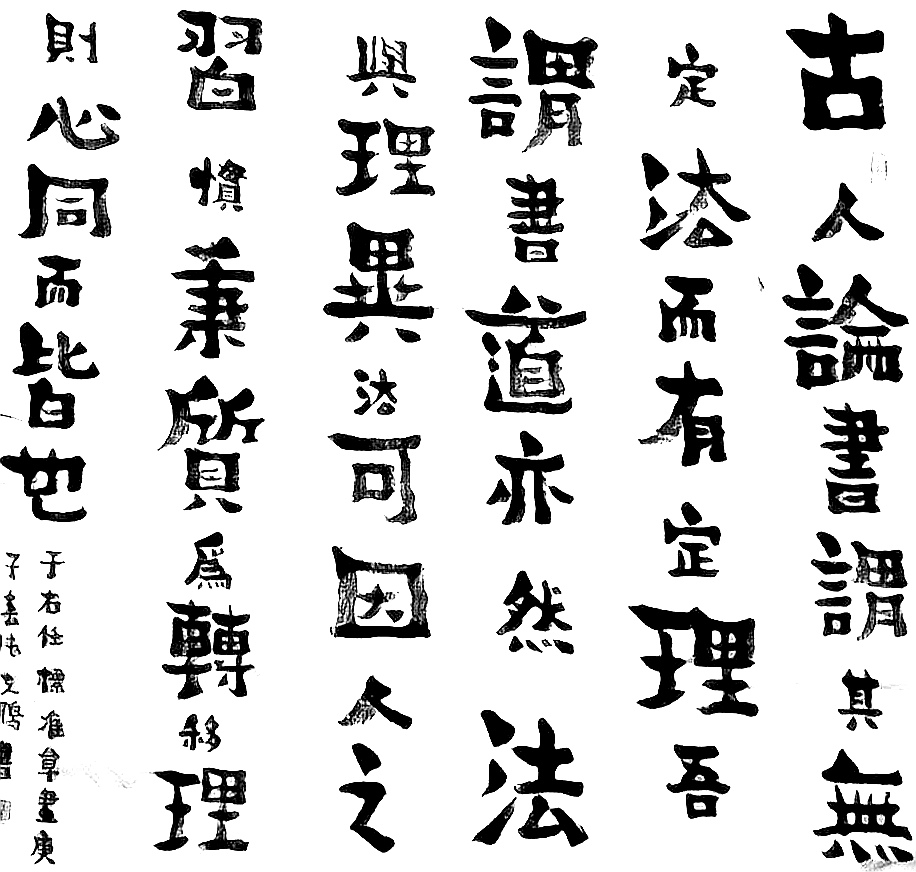 古人論書謂其無
定法而有定理吾
謂書道亦然法
與理異法可因人之
習慣秉質為轉移理
則心同而皆也
于右任標准草書庚
子春沈